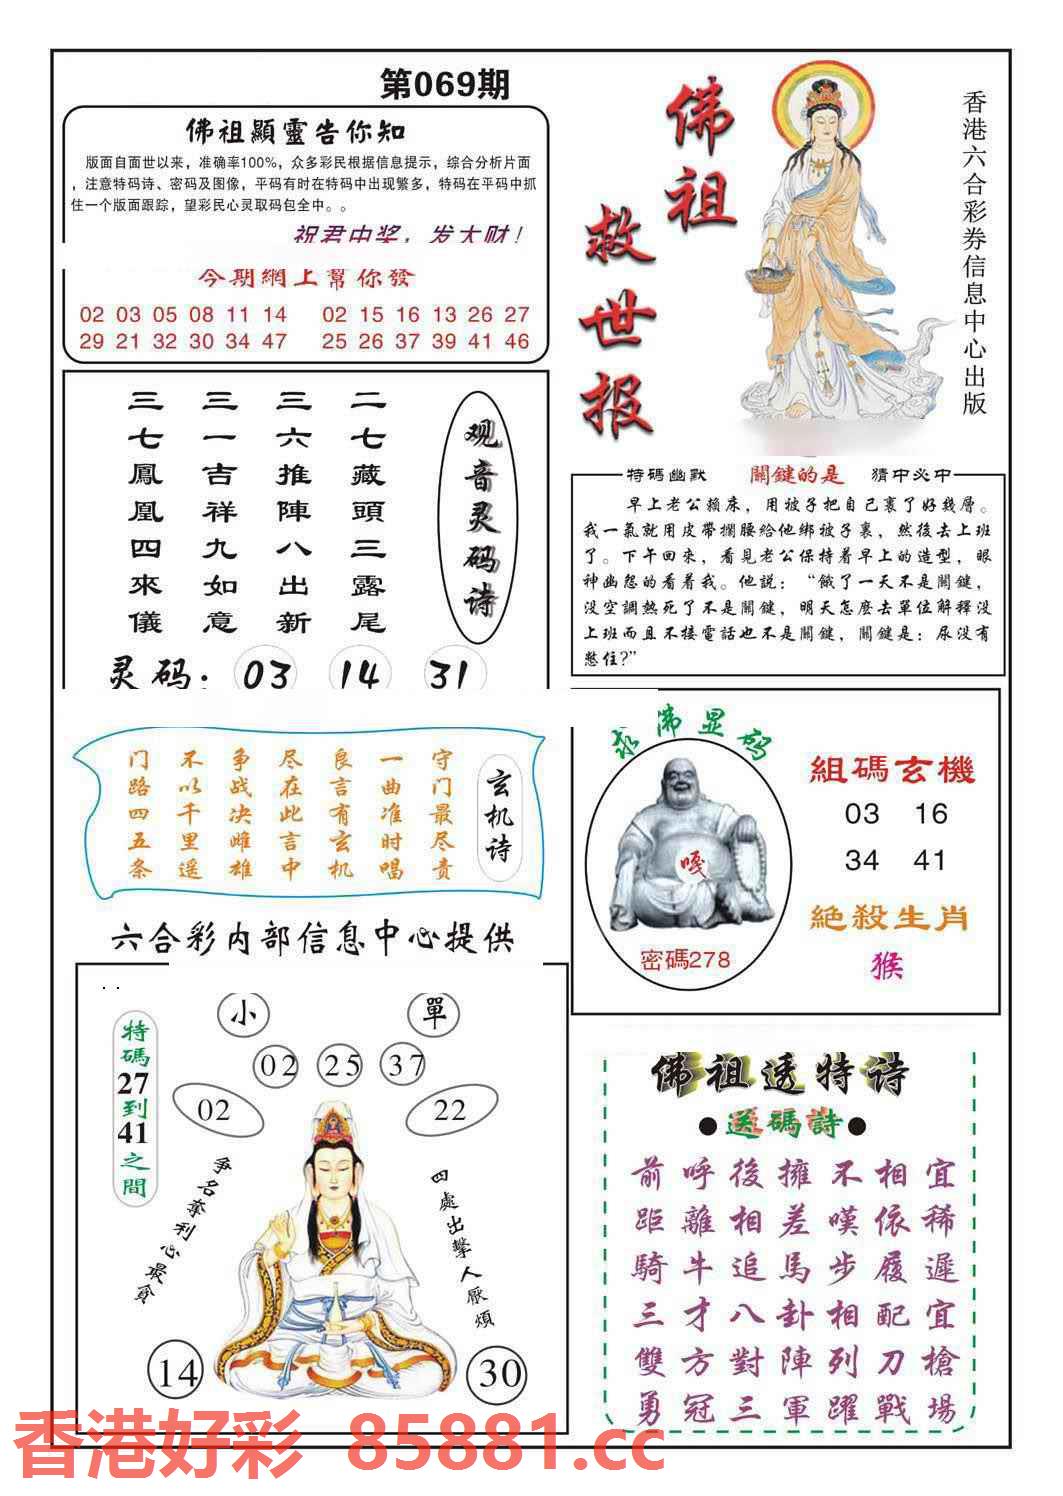 第069期
佛祖顯靈告你知
版面自面世以来，准确率100%，众多彩民根据信息提示，综合分析片面
，注意特码诗、密码及图像，平码有时在特码中出现繁多，特码在平码中抓
住一个版面跟踪，望彩民心灵取码包全中。。
祝君中奖，发大财！
今期網上幫你發
02 03 05 08 11 14 02 15 16 13 26 27
29 21 32 30 34 47 25 26 37 39 41 46
佛祖
救世报
香港六合彩券信息中心出版
观音灵码诗
二七藏頭三露尾
三六推陳八出新
三一吉祥九如意
三七鳳凰四來儀
灵码：03 14 31
特碼幽默 關鍵的是 猜中必中
早上老公賴床，用被子把自己裹了好幾層。
我一氣就用皮帶攔腰給他綁被子裏，然後去上班
了。下午回來，看見老公保持着早上的造型，眼
神幽怨的看着我。他説：“餓了一天不是關鍵，
没空調熱死了不是關鍵，明天怎麼去單位解釋没
上班而且不接電話也不是關鍵，關鍵是：尿没有
憋住?”
玄机诗
守门最尽责
一曲准时唱
良言有玄机
尽在此言中
争战决雌雄
不以千里遥
门路四五条
六合彩内部信息中心提供
求佛显码
嘎
密碼278
組碼玄機
03 16
34 41
絕殺生肖
猴
小 單
02 25 37
02 22
特碼27到41之間
爭名奪利心最貪
四處出擊人厭煩
14 30
佛祖透特诗
●送碼詩●
前呼後擁不相宜
距離相差嘆依稀
騎牛追馬步履遲
三才八卦相配宜
雙方對陣列刀槍
勇冠三軍躍戰場
香港好彩 85881.cc